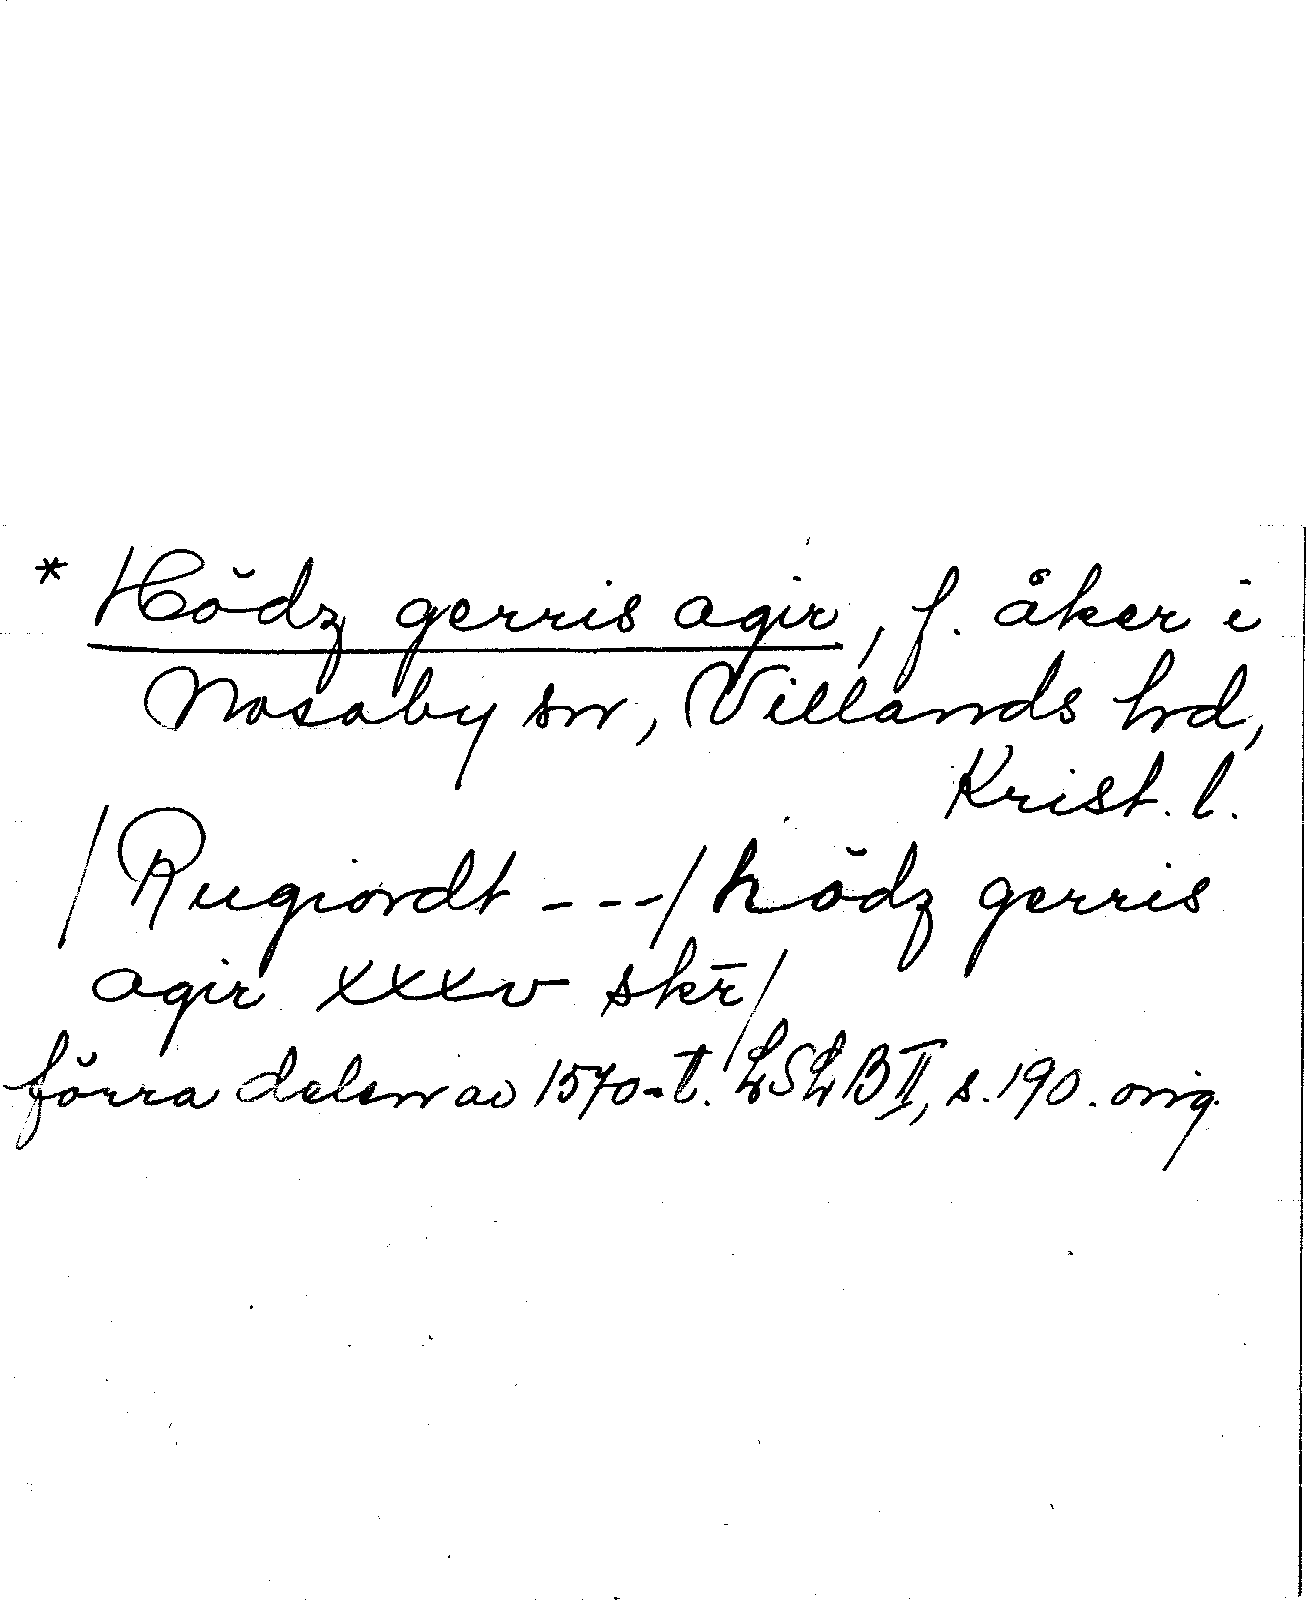 * Hödz gerris agir, f. åker i
Nosaby sn, Villands hrd,
Krist. l.
/Rugiordt ---/ hödz gerris
agir xxxv skr̄/
förra delen av 1570-t. LSLB II, s. 190. orig.